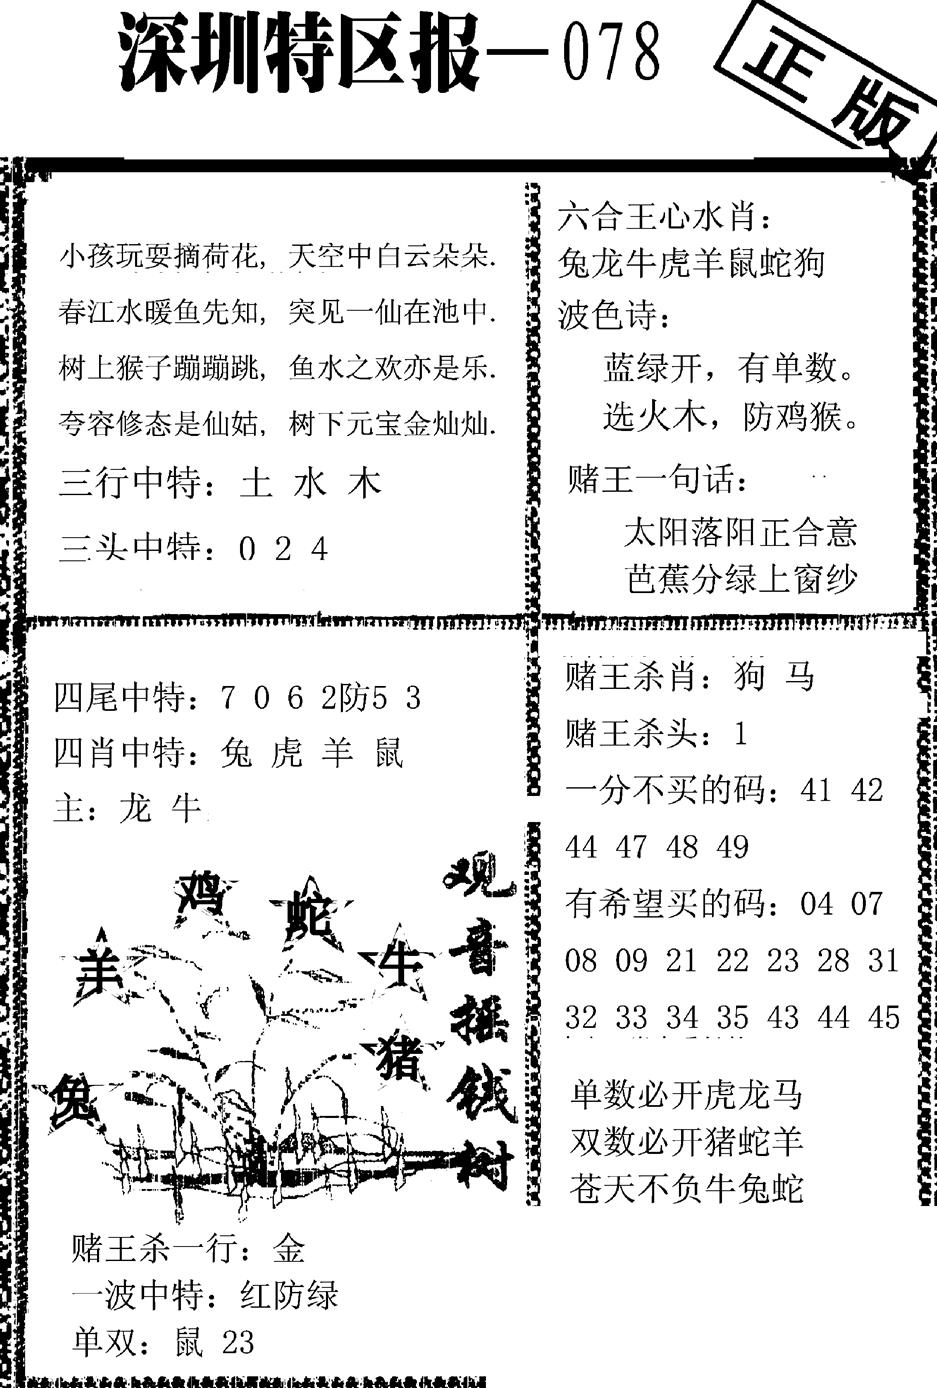 深圳特区报—078
正版
小孩玩耍摘荷花, 天空中白云朵朵.
春江水暖鱼先知, 突见一仙在池中.
树上猴子蹦蹦跳, 鱼水之欢亦是乐.
夸容修态是仙姑, 树下元宝金灿灿.
三行中特: 土 水 木
三头中特: 0 2 4
六合王心水肖:
兔龙牛虎羊鼠蛇狗
波色诗:
蓝绿开, 有单数。
选火木, 防鸡猴。
赌王一句话:
太阳落阳正合意
芭蕉分绿上窗纱
四尾中特: 7 0 6 2防5 3
四肖中特: 兔 虎 羊 鼠
主: 龙 牛
鸡
蛇
羊
牛
猪
兔
观音摇钱树
赌王杀一行: 金
一波中特: 红防绿
单双: 鼠 23
赌王杀肖: 狗 马
赌王杀头: 1
一分不买的码: 41 42
44 47 48 49
有希望买的码: 04 07
08 09 21 22 23 28 31
32 33 34 35 43 44 45
单数必开虎龙马
双数必开猪蛇羊
苍天不负牛兔蛇